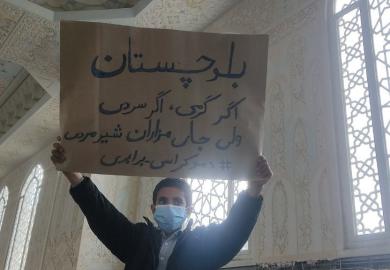 بلوچستان
اگر گرمی، اگر سردی
ولی جای هزاران شیر مردی
# دموکراسی_برابری